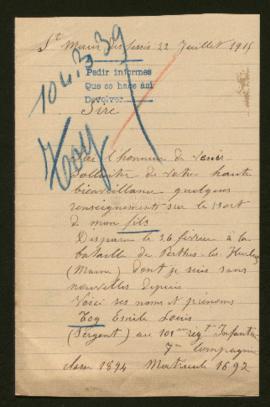 St 22 Juillet 1915
104.339
Pedir informes
Que se hace así
Devolver
Sire
l'honneur de venir
solliciter de votre haute
bienveillance quelques
renseignements sur le sort
de mon fils
Disparu le 26 février à la
bataille de Perthes-les-Hurlus
(Marne) dont je suis sans
nouvelles depuis
Voici ses noms et prénoms
Emile Louis
(Sergent) au 101eme regt Infanterie
7me Compagnie
Classe 1894 Matricule 1692